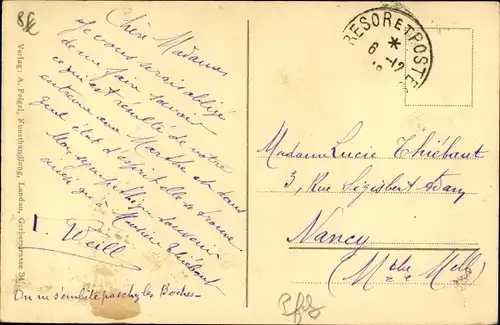 85c
Chère Madame,
Je vous serais obligé
de me faire savoir
ce qui est résulté de votre
entrevue avec Marthe et dans
quel état d'esprit elle se trouve.
Mon sympathique souvenir
ainsi qu'à Monsieur Thiébaut
F. Weill
On ne s'embête pas chez les Boches-
Verlag: A. Feigel, Kunsthandlung, Landau, Gerberstrasse 34.
TRESOR ET POSTES
*
6 -12
Madame Lucie Thiébaut
3, Rue Sigisbert Adam
Nancy
(Mthe Mlle)
Pfalz